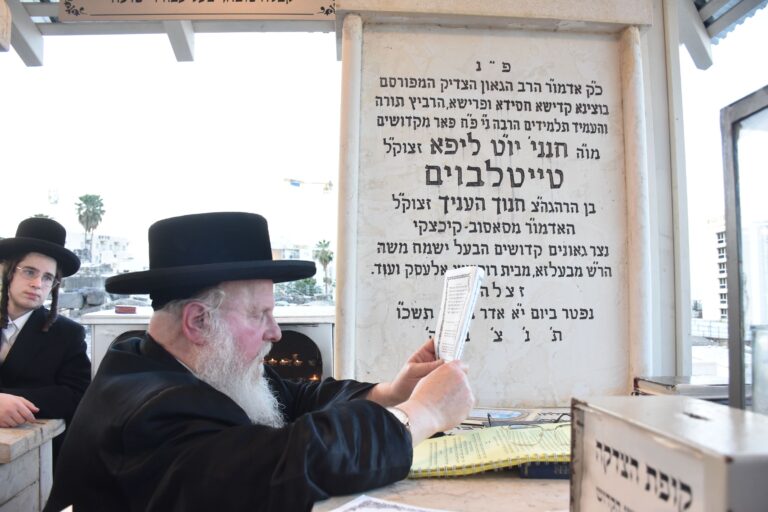 פ״נ
כ״ק אדמו״ר הרב הגאון הצדיק המפורסם
בוצינא קדישא חסידא ופרישא, הרביץ תורה
והעמיד תלמידים הרבה נ״י פ״ח פאר מקדושים
מו״ה חנני׳ יו״ט ליפא זצוק״ל
טייטלבוים
בן הרהגה״צ חנוך העניך זצוק״ל
האדמו״ר מסאסוב-קיכצקי
נצר גאונים קדושים הבעל ישמח משה
הר״ש מבעלזא, מבית אלעסק ועוד.
זצלה
נפטר ביום י״א אדר תשכ״ו
ת׳ נ׳ צ׳ ב׳ ה׳
קופת הצדקה